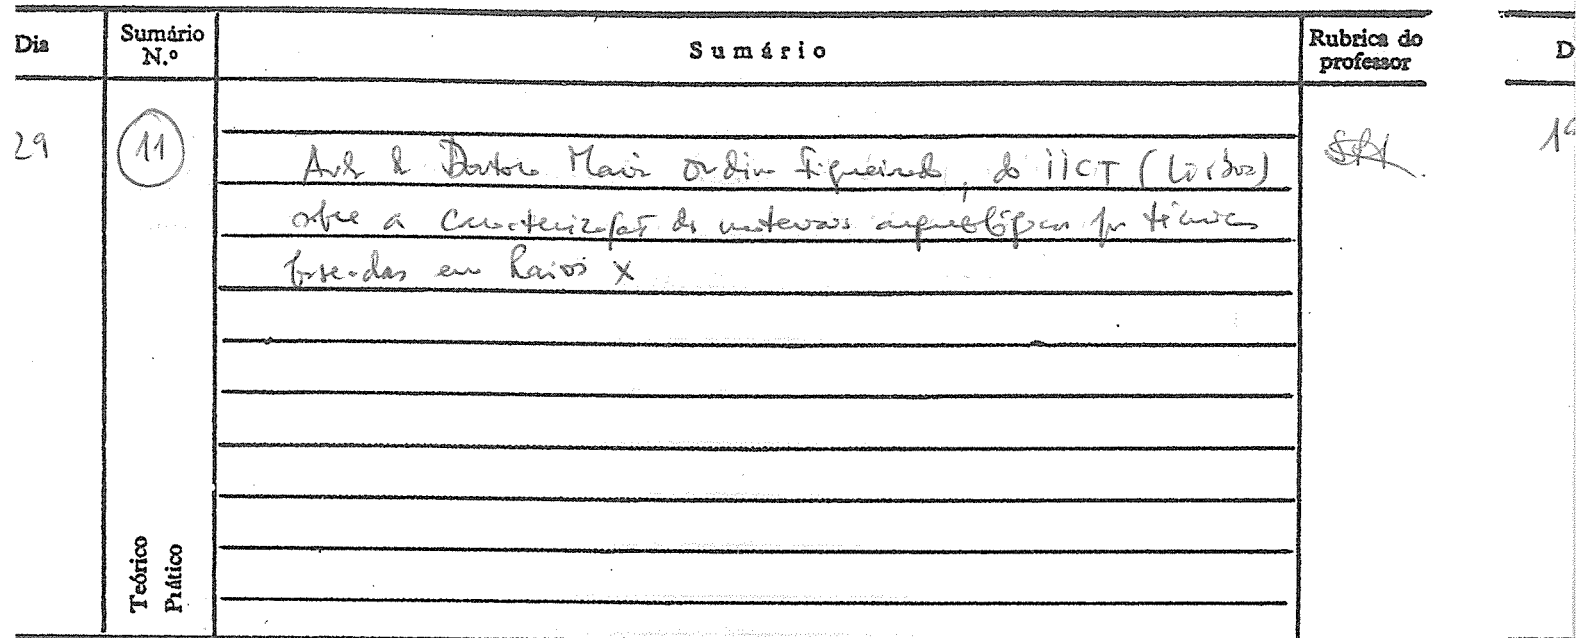 Dia Sumário N.º Sumário Rubrica do professor D
29 11 Aula da Doutora Maria Ondina Figueiredo, do IICT (Lisboa)
sobre a caracterização de materiais arqueológicos por técnicas
baseadas em Raios X
Teórico
Prático